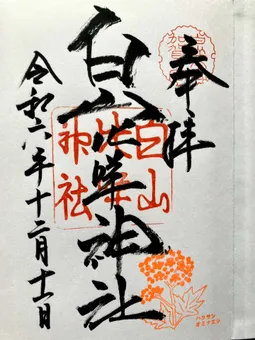 奉拝
白山比咩神社
白山
比咩
神社
令和六年十二月十一日
ハクサン
オミナエシ